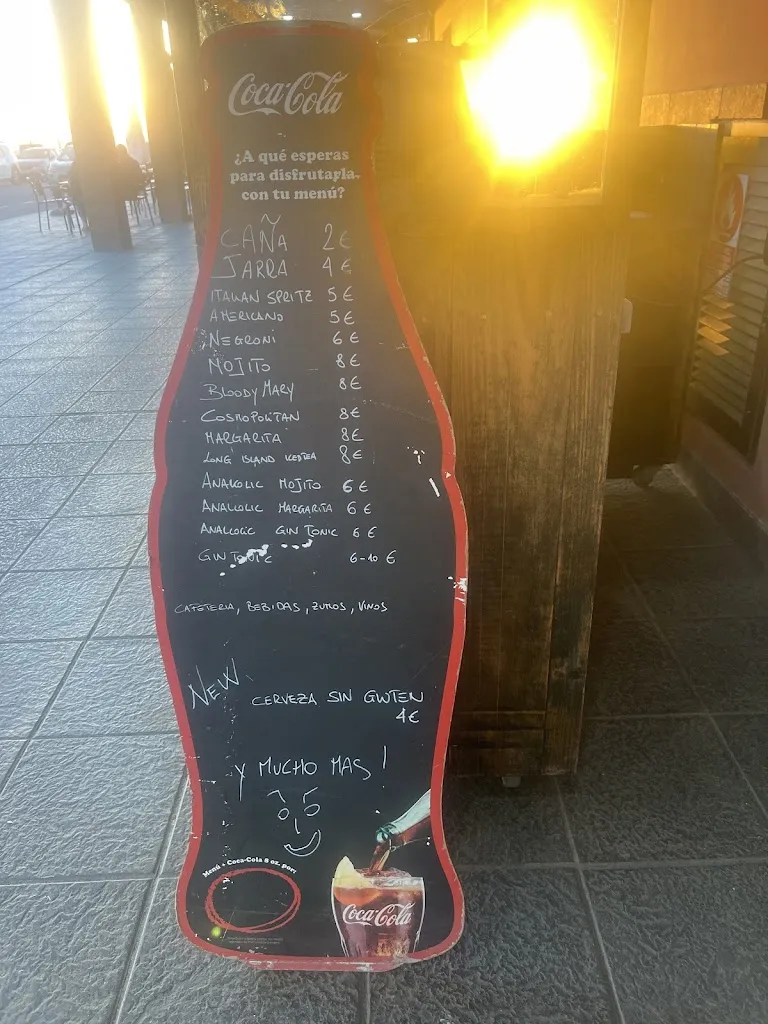 Coca-Cola
¿A qué esperas
para disfrutarla
con tu menú?
CAÑA 2€
JARRA 4€
ITALIAN SPRITZ 5€
AMERICANO 5€
NEGRONI 6€
MOJITO 8€
BLOODY MARY 8€
COSMOPOLITAN 8€
MARGARITA 8€
LONG ISLAND ICEDTEA 8€
ANALCOLIC MOJITO 6€
ANALCOLIC MARGARITA 6€
ANALCOLIC GIN TONIC 6€
GIN TONIC 6-10 €
CAFETERIA, BEBIDAS, ZUMOS, VINOS
NEW
CERVEZA SIN GLUTEN
4€
Y MUCHO MAS!
Menú + Coca-Cola 8 oz. por:
Coca-Cola